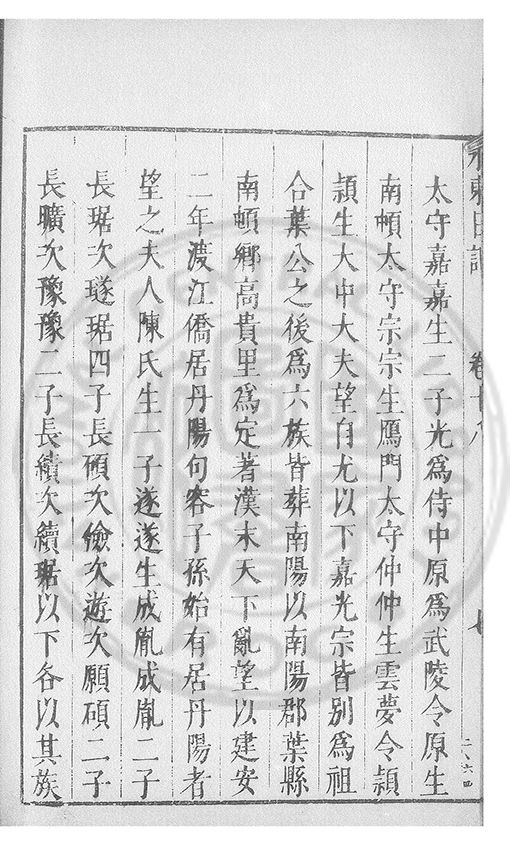 太守嘉嘉生二子光爲侍中原爲武陵令原生
南頓太守宗宗生鴈門太守仲仲生雲夢令頴
頴生大中大夫望自尤以下嘉光宗皆別爲祖
合葉公之後爲六族皆葬南陽以南陽郡葉縣
南頓鄉高貴里爲定著漢末天下亂望以建安
二年渡江僑居丹陽句容子孫始有居丹陽者
望之夫人陳氏生一子遂遂生成胤成胤二子
長琚次璲琚四子長碩次儉次遊次願碩二子
長曠次豫豫二子長續次纘琚以下各以其族
卷十八